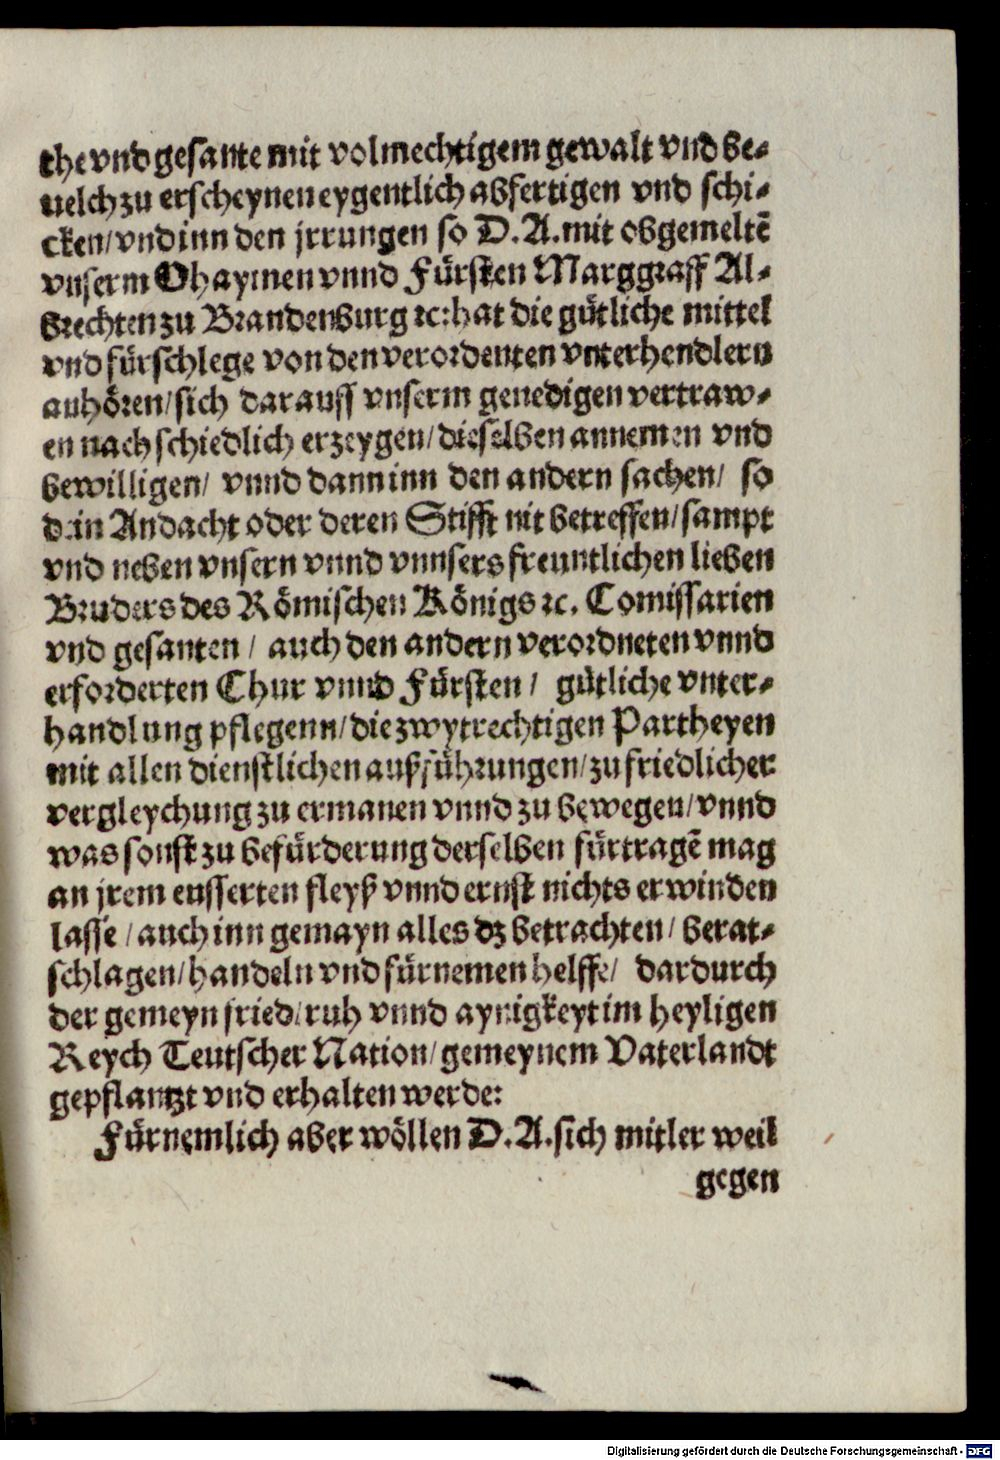 the vnd gesante mit volmechtigem gewalt vnd be-
uelch zu erscheynen eygentlich abfertigen vnd schi-
cken/vnd inn den jrrungen so D. A. mit obgemeltē
vnserm Ohaymen vnnd Fürsten Marggraff Al-
brechten zu Brandenburg ꝛc: hat die gütliche mittel
vnd fürschlege von den verordenten vnterhendlern
anhören/sich darauff vnserm genedigen vertraw-
en nach schiedlich erzeygen/dieselben annemen vnd
bewilligen/ vnnd dann inn den andern sachen/ so
dein Andacht oder deren Stifft nit betreffen/sampt
vnd neben vnsern vnnd vnnsers freuntlichen lieben
Bruders des Römischen Königs ꝛc. Comissarien
vnd gesanten/ auch den andern verordneten vnnd
erforderten Chur vnnd Fürsten/ gütliche vnter-
handlung pflegenn/die zwytrechtigen Partheyen
mit allen dienstlichen außführungen/zu friedlicher
vergleychung zu ermanen vnnd zu bewegen/vnnd
was sonst zu befürderung derselben fürtragē mag
an jrem eusserten fleyß vnnd ernst nichts erwinden
lassē/auch inn gemayn alles dz betrachten/berat-
schlagen/handeln vnd fürnemen helffē/ dardurch
der gemeyn fried/ruh vnnd aynigkeyt im heyligen
Reych Teutscher Nation/gemeynem Vaterlandt
gepflantzt vnd erhalten werde:
Fürnemlich aber wöllen D. A. sich mitler weil
gegen
Digitalisierung gefördert durch die Deutsche Forschungsgemeinschaft - DFG